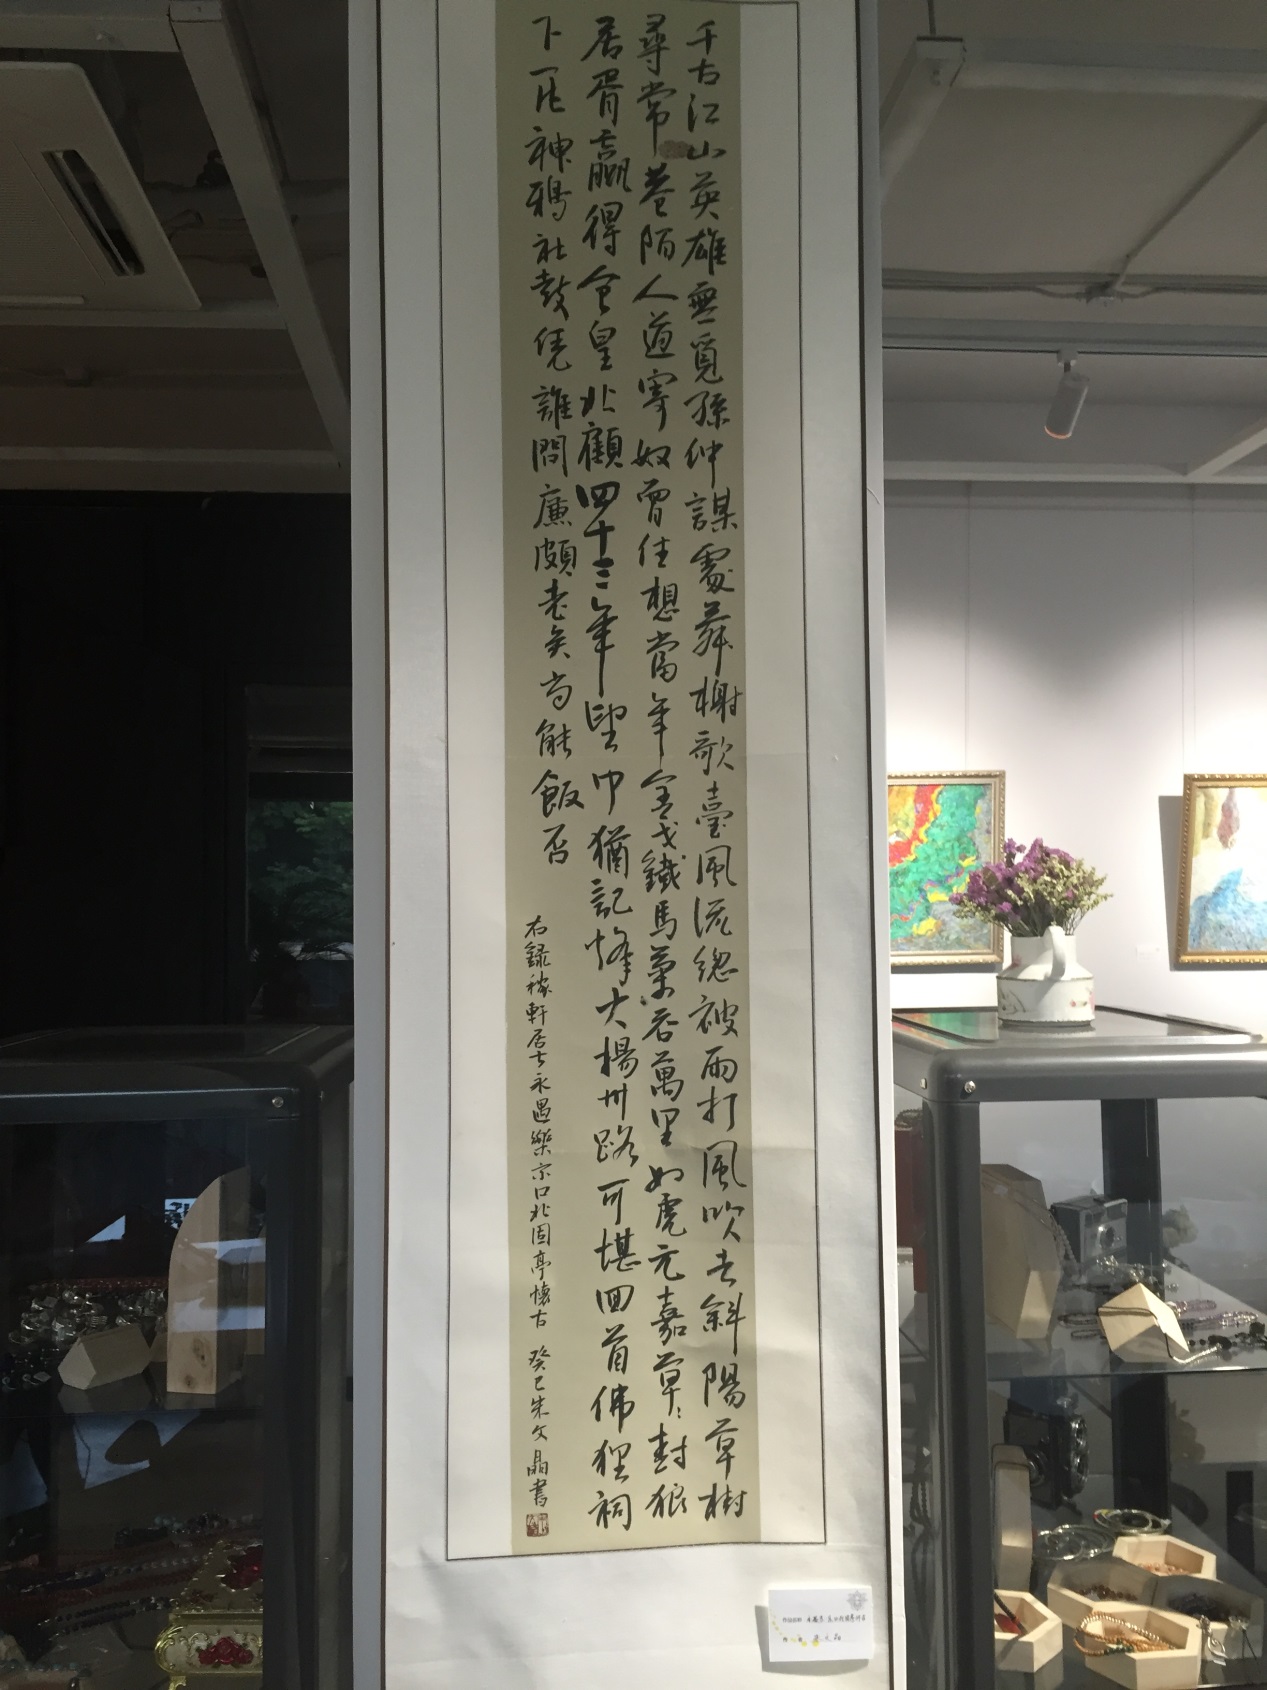 千古江山英雄無覓孫仲謀處舞榭歌臺風流總被雨打風吹去斜陽草樹
尋常巷陌人道寄奴曾住想當年金戈鐵馬氣吞萬里如虎元嘉草草封狼
居胥贏得倉皇北顧四十三年望中猶記烽火楊州路可堪回首佛狸祠
下一片神鴉社鼓凭誰問廉頗老矣尚能飯否
右錄稼軒居士永遇樂京口北固亭懷古 癸巳朱文晶書